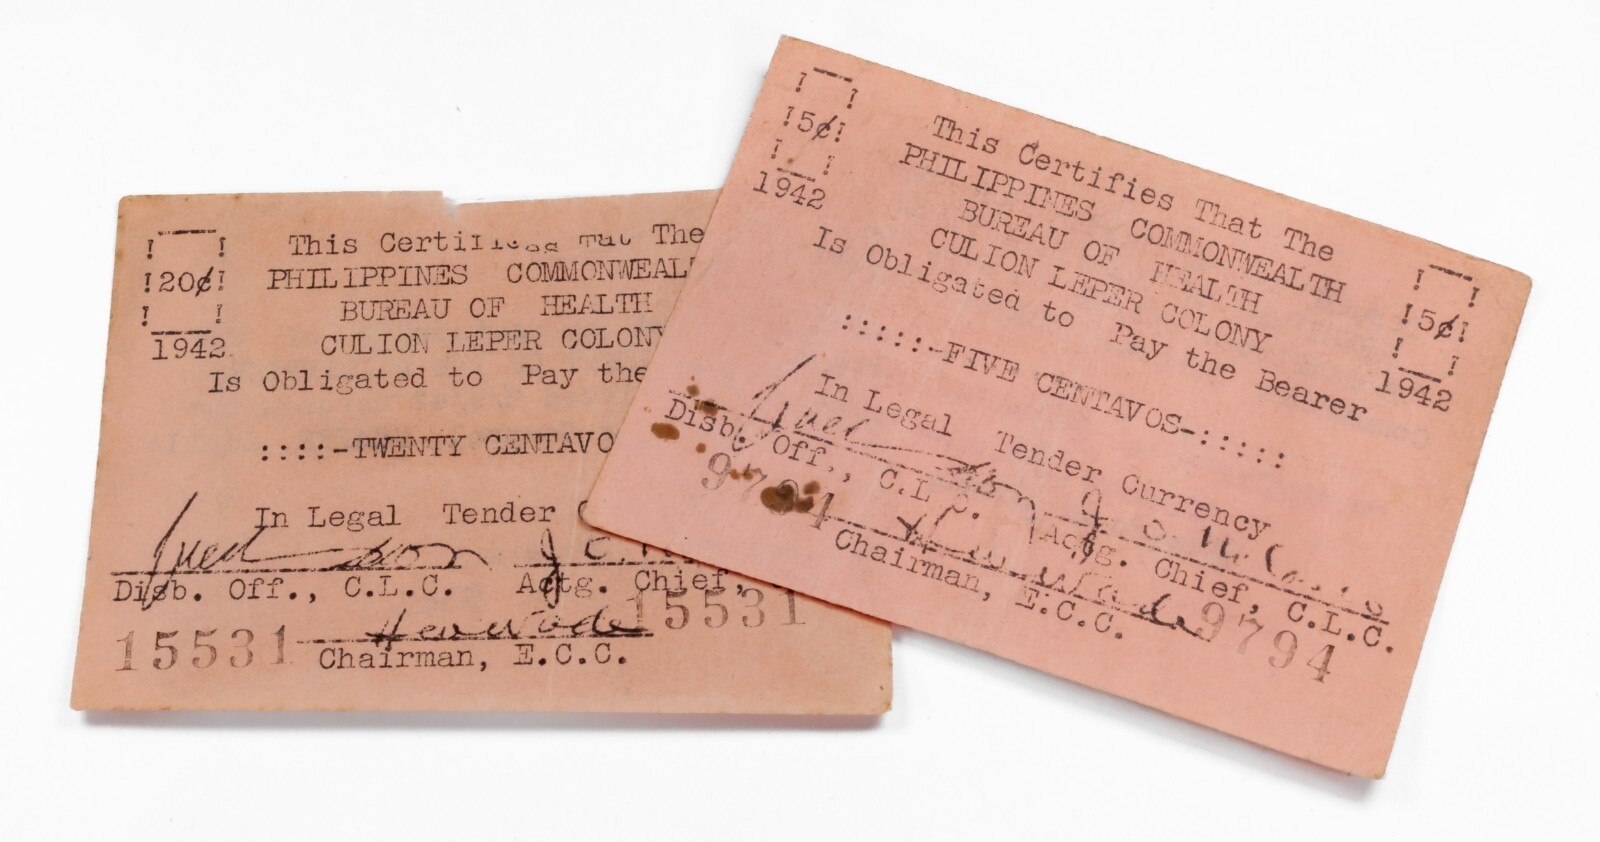 20¢
1942
This Certifies That The
PHILIPPINES COMMONWEALT
BUREAU OF HEALTH
CULION LEPER COLONY
Is Obligated to Pay the
::::-TWENTY CENTAVO
In Legal Tender
Disb. Off., C.L.C. Actg. Chief,
15531 15531
Chairman, E.C.C.
5¢
1942
This Certifies That The
PHILIPPINES COMMONWEALTH
BUREAU OF HEALTH
CULION LEPER COLONY
Is Obligated to Pay the Bearer
5¢
1942
:::::-FIVE CENTAVOS-:::::
In Legal Tender Currency
Disb. Off., C.L.C. Actg. Chief, C.L.C.
9794 9794
Chairman, E.C.C.